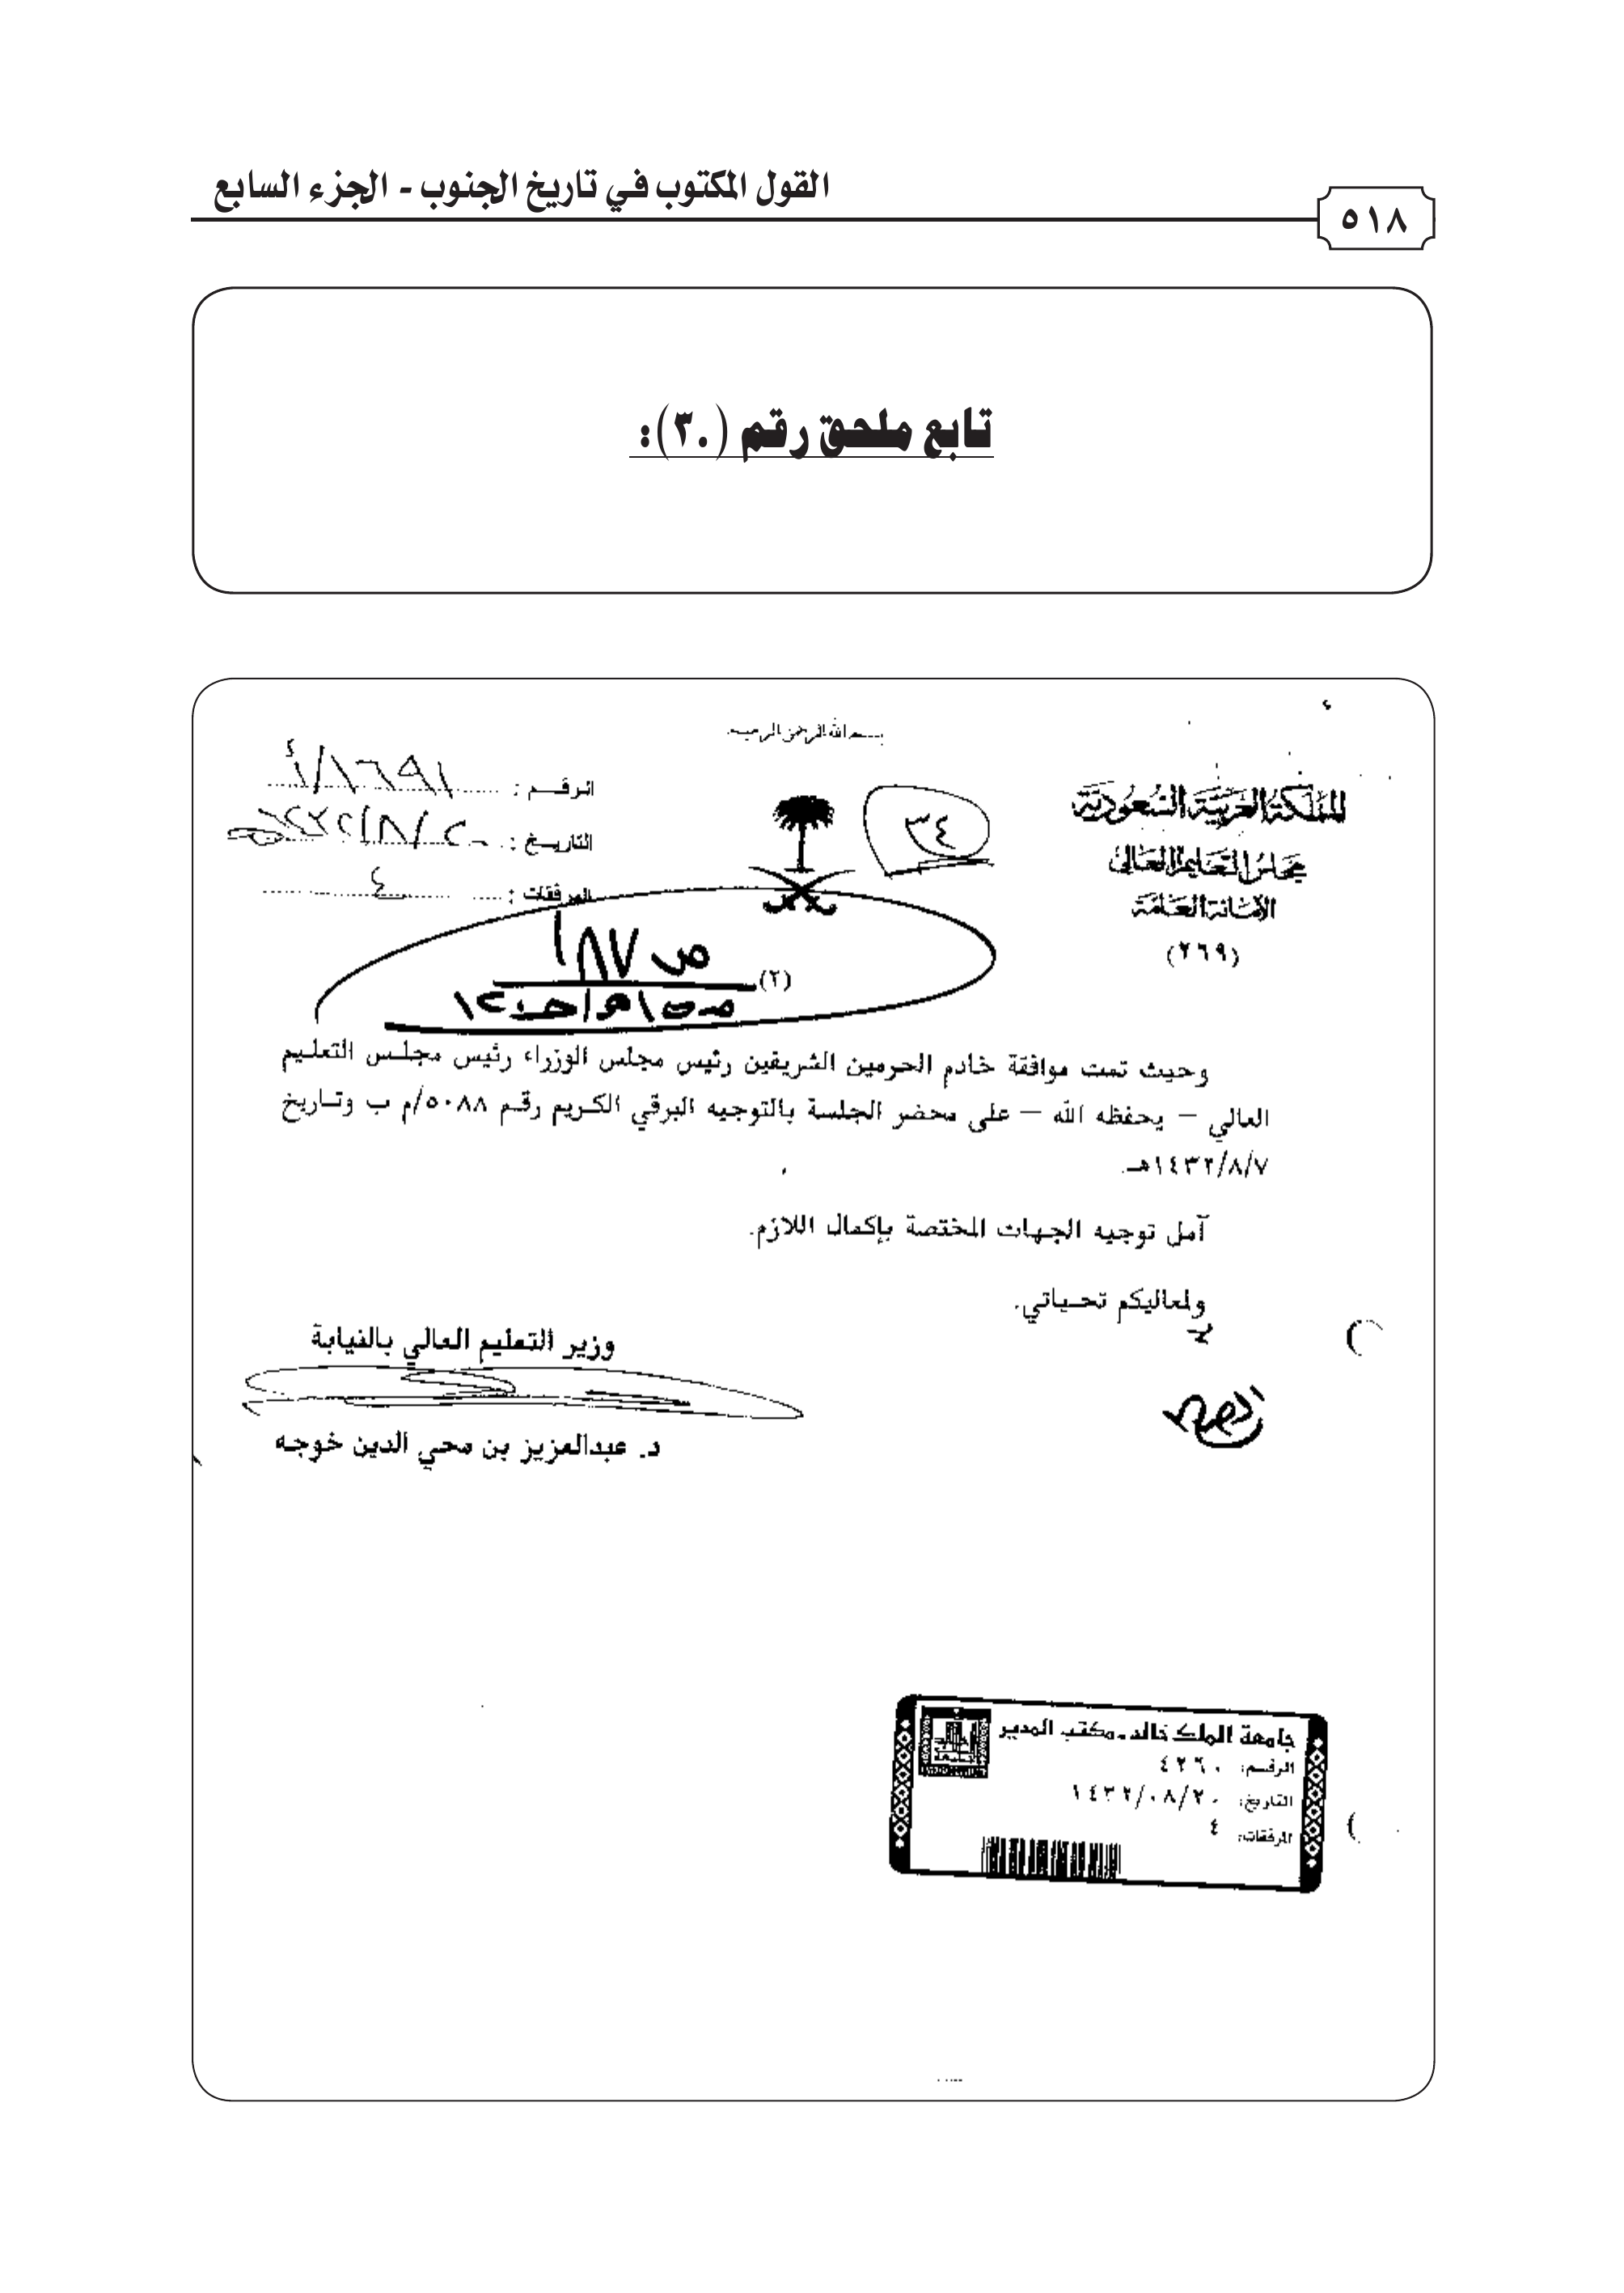 القول المكتوب في تاريخ الجنوب - الجزء السابع
٥١٨
تابع ملحق رقم (٣٠):
بسم الله الرحمن الرحيم
المملكة العربية السعودية
مجلس التعليم العالي
الأمانة العامة
(٢٦٩)
٣٤
الرقم :
التاريخ :
المرفقات : ٤
ص ١٨٧
(٢)
وحيث تمت موافقة خادم الحرمين الشريفين رئيس مجلس الوزراء رئيس مجلس التعليم
العالي – يحفظه الله – على محضر الجلسة بالتوجيه البرقي الكريم رقم ٥٠٨٨/م ب وتاريخ
١٤٣٢/٨/٧هـ.
آمل توجيه الجهات المختصة بإكمال اللازم.
ولمعاليكم تحياتي.
وزير التعليم العالي بالنيابة
د. عبدالعزيز بن محي الدين خوجه
جامعة الملك خالد - مكتب المدير
الرقم: ٤٢٦٠
التاريخ: ١٤٣٢/٠٨/٢٠
المرفقات: ٤